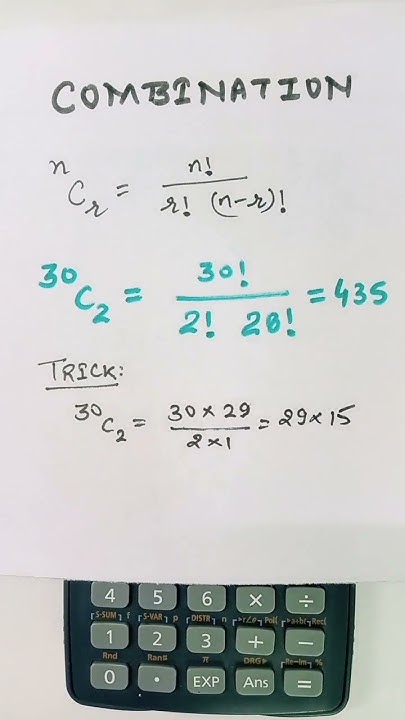 COMBINATION
ⁿCᵣ = n! / r! (n-r)!
³⁰C₂ = 30! / 2! 28! = 435
TRICK:
³⁰C₂ = 30 × 29 / 2 × 1 = 29 × 15
4 5 6 × ÷
S-SUM S-VAR DISTR Pol( Rec(
1 2 3 + −
Rnd Ran# π DRG▸ Re-Im %
0 · EXP Ans =